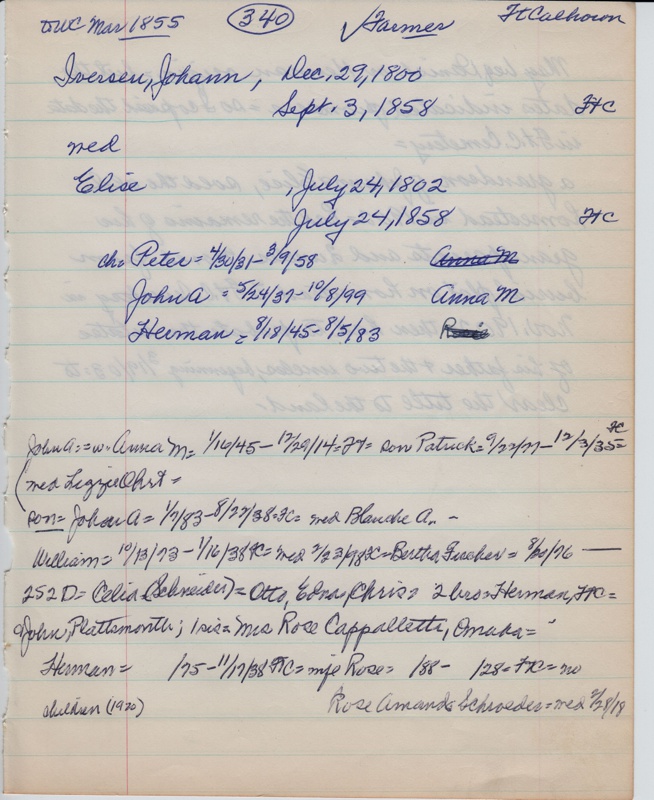 DWC Mar 1855 340 ✓Farmer Ft Calhoun
Iversen, Johann, Dec, 29, 1800
Sept. 3, 1858 FtC
med
Elise , July 24, 1802
July 24, 1858 FtC
ch= Peter = 4/30/31 - 3/9/58 Anna M
John A = 5/24/37 - 10/8/99 Anna M
Herman = 8/18/45 - 8/5/83 Rosie
FC
John A = w. Anna M = 1/16/45 - 12/29/14 = 74 = son Patrick = 9/22/77 - 12/3/35 =
(med Lizzie Ohrt =
son = John A = 1/7/83 - 8/27/38 FC = med Blanche A. -
William = 10/13/73 - 1/16/38 FC = med 2/23/98 FC = Bertha Fischer = 8/20/76 —
252 D = Celia (Schneider) = Otto, Edna, Chris = 2 bros = Herman, FTC =
John, Plattsmouth; 1 sis = Mrs Rose Cappallette, Omaha =
Herman = /75 - 11/17/38 FC = wife Rose = /88 - /28 = FTC = no
children (1920) Rose Amanda Schroeder = med 2/28/18